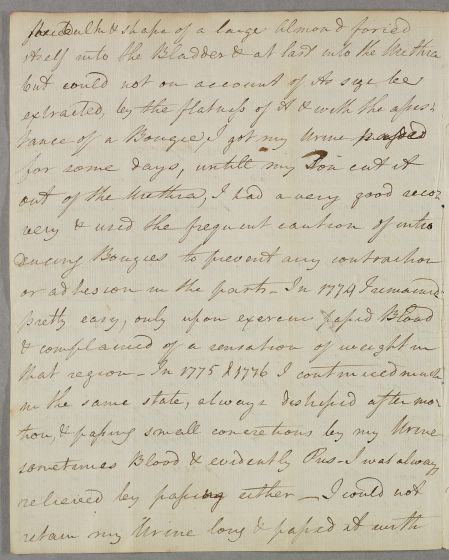 & shape of a large Almond forced
itself into the Bladder & at last into the Urethra
but could not on account of its size be
extracted, by the flatness of it & with the assis:
tance of a Bougie, I got my Urine passed
for some days, untill my Son cut it
out of the Urethra, I had a very good reco:
very & used the frequent caution of intro
ducing Bougies to prevent any contraction
or adhesion in the parts_ In 1774 I remained
pretty easy, only upon exercise passed Blood
& complained of a sensation of weight in
that region_ In 1775 & 1776 I continued much
in the same state, always distressed after mo:
tion, & passing small concretions by my Urine
sometimes Blood & evidently Pus_ I was always
relieved by passing either _ I could not
retain my Urine long & passed it with